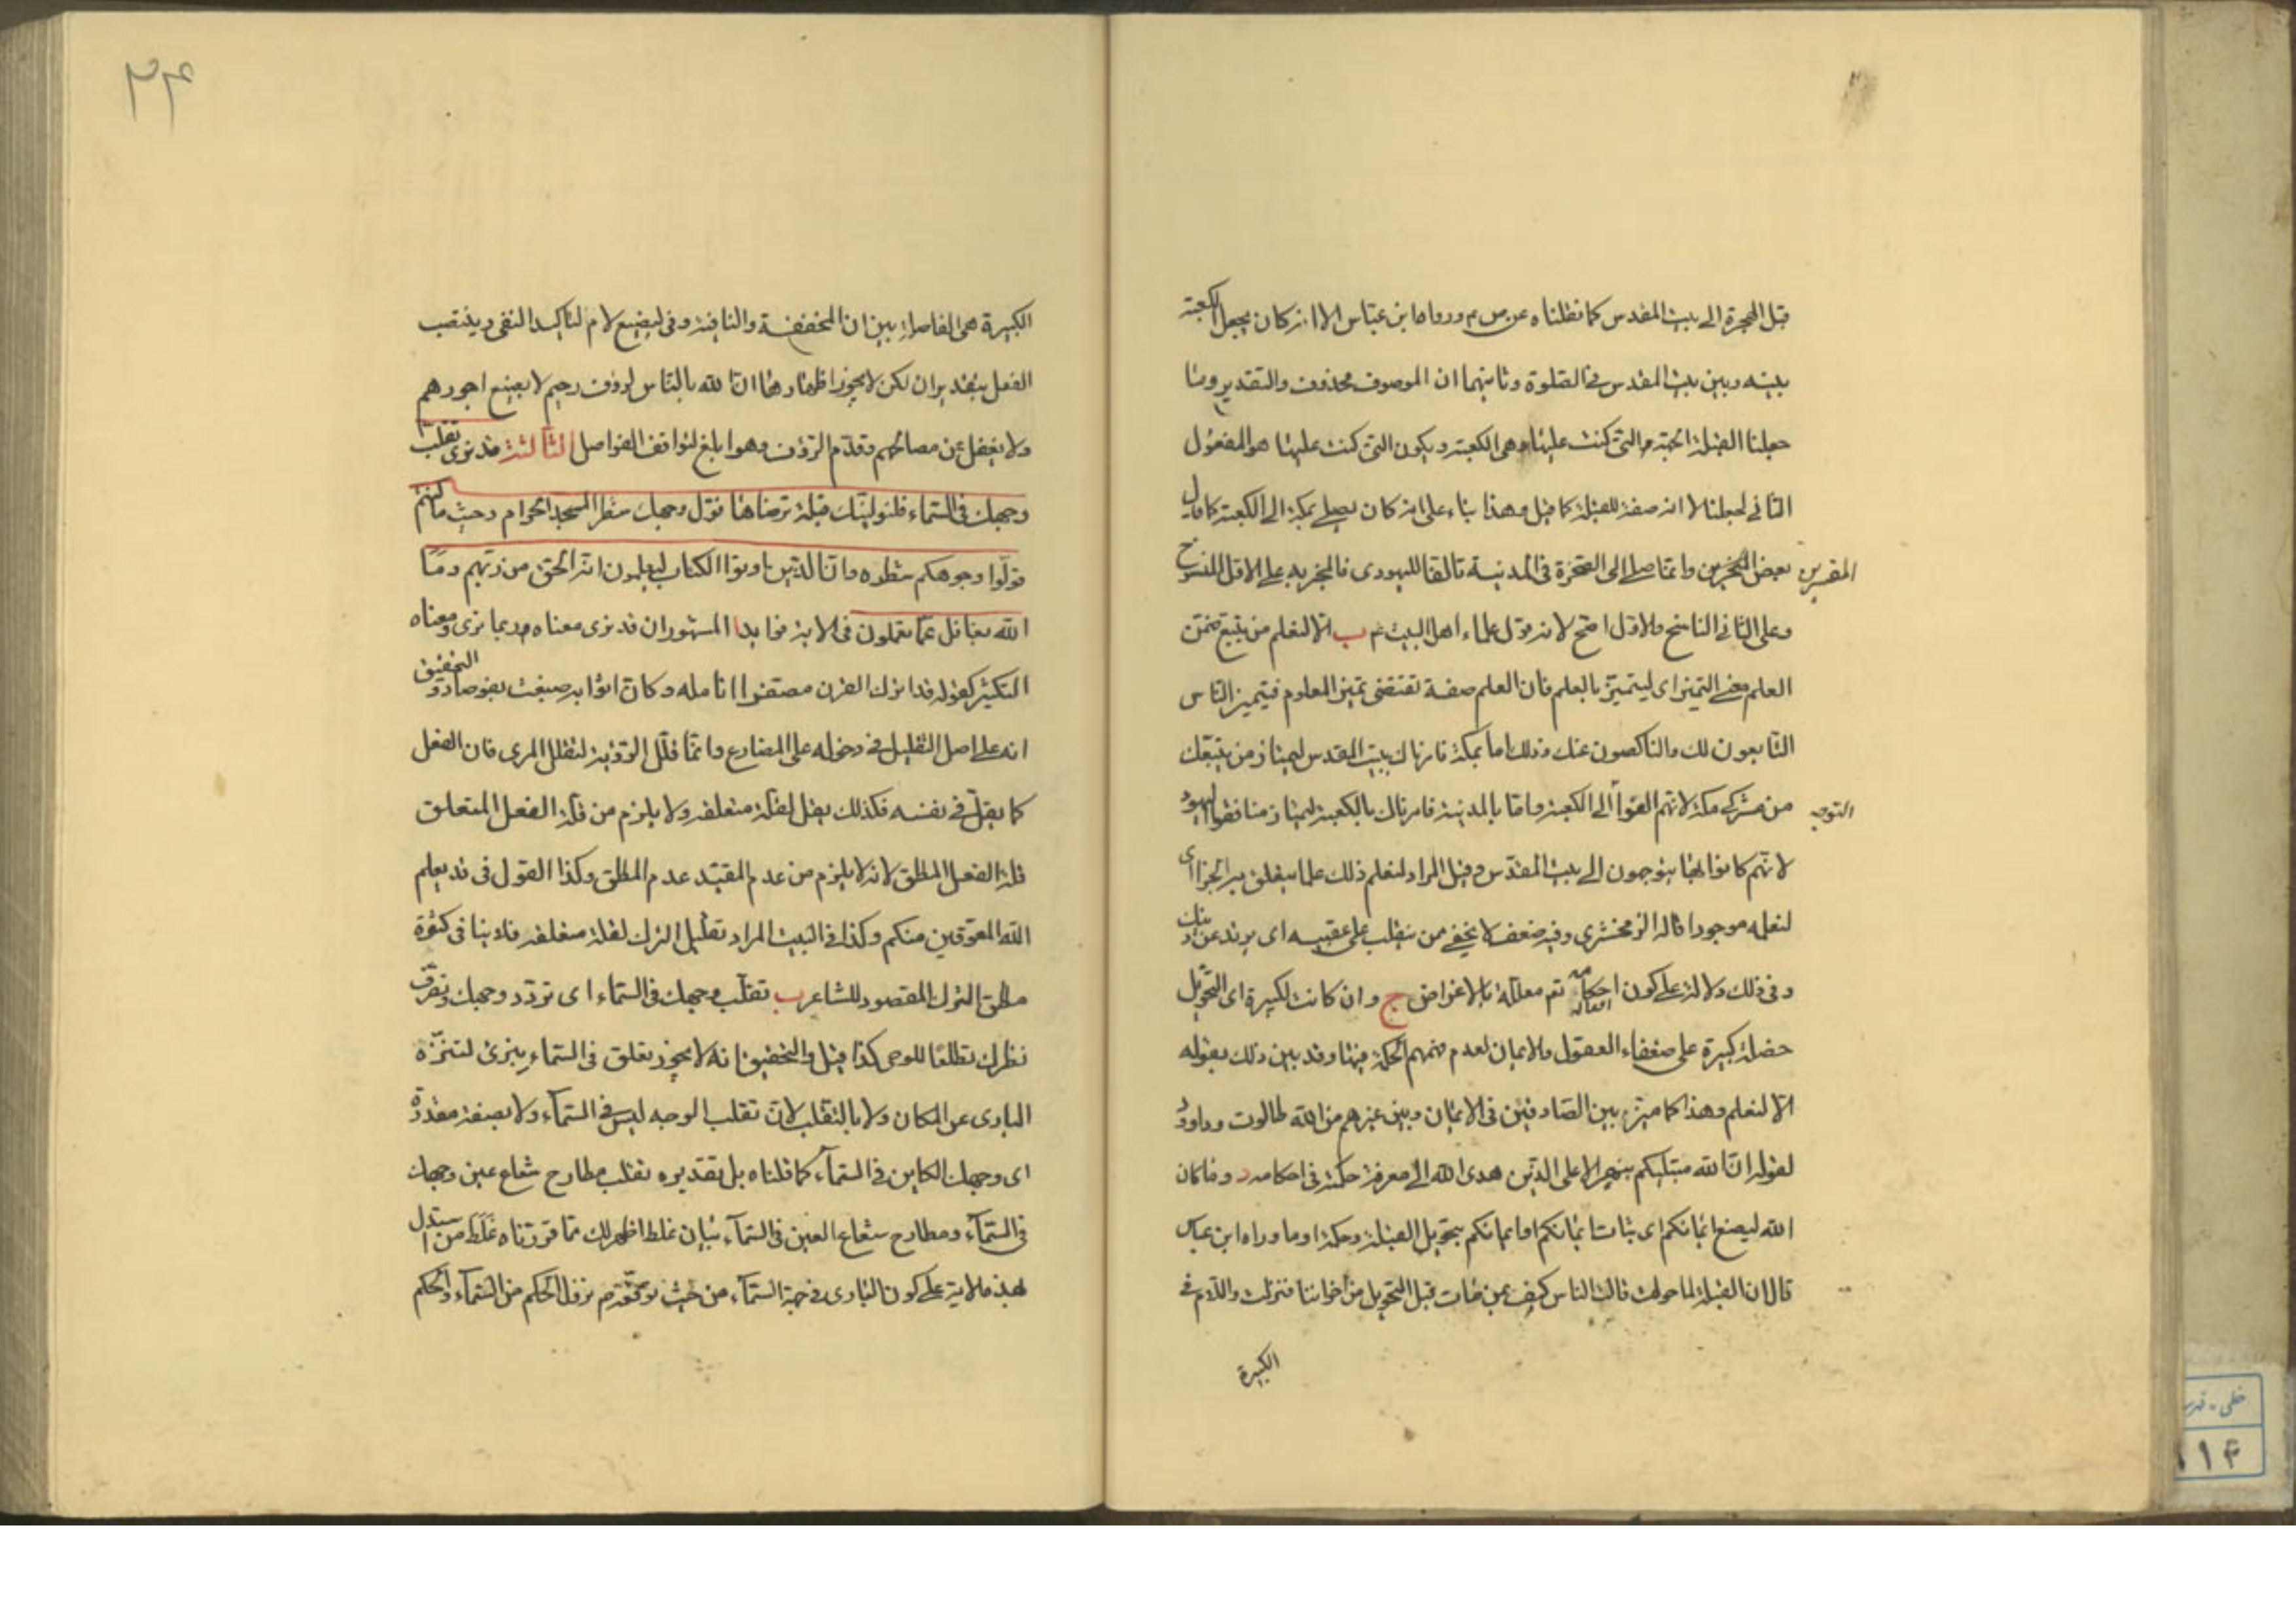 قبل الهجرة الى بيت المقدس كما نقلناه عن ص م ورواه ابن عباس الا انه كان يجعل الكعبة
بينه وبين بيت المقدس في الصلوة وثانيهما ان الموصوف محذوف والتقدير وما
جعلنا القبلة الجهة التي كنت عليها وهي الكعبة ويكون التي كنت عليها هو المفعول
الثاني لجعلنا لا انه صفة للقبلة كما قيل وهذا بناء على انه كان يصلي بمكة الى الكعبة كما قال
بعض المخبرين وانما صلى الى الصخرة في المدينة تالفا لليهود فالمخبر به على الاول المنسوخ
المفسرين
وعلى الثاني الناسخ والاول اصح لانه قول علماء اهل البيت ع ب الا لنعلم من يتبع ضمن
العلم معنى التميز اى ليتميز بالعلم فان العلم صفة تقتضى تميز المعلوم فيتميز الناس
التابعون لك والناكصون عنك وذلك اما بمكة فامرناك ببيت المقدس ليمتاز من يتبعك
من مشركي مكة لانهم الفوا الى الكعبة واما بالمدينة فامرناك بالكعبة ليمتاز منافقوا اليهود
التوجه
لانهم كانوا بها يتوجهون الى بيت المقدس وقيل المراد لنعلم ذلك علما يتعلق به الجزا اى
لنعلمه موجودا قاله الزمخشري وفيه ضعف لا يخفى ممن ينقلب على عقبيه اى يرتد عن دينك
وفي ذلك دلالة على كون احكامه تعالى معللة بالاغراض ج وان كانت لكبيرة اى التحويل
خصلة كبيرة على ضعفاء العقول والايمان لعدم فهمهم الحكمة فيها وقد بين ذلك بقوله
الا لنعلم وهذا كما ميز بين الصادقين في الايمان وبين غيرهم من الله طالوت وداود
لقوله ان الله مبتليكم بنهر الا على الذين هدى الله الى معرفة حكمته في احكامه د وما كان
الله ليضيع ايمانكم اى ثبات ايمانكم او ايمانكم بتحويل القبلة وحكمه او ما رواه ابن عباس
قال ان القبلة لما حولت قالت الناس كيف بمن مات قبل التحويل من اخواننا فنزلت واللام في
الكبيرة
٣۴
الكبيرة هى الفاصلة بين ان المخففة والنافية وفي ليضيع لام لتاكيد النفى وينتصب
الفعل بتقدير ان لكن لا يجوز اظهارها ان الله بالناس لرؤف رحيم لا يضيع اجورهم
ولا يغفل عن مصالحهم وقدم الرؤف وهو ابلغ لتوافق الفواصل الثالثة قد نرى تقلب
وجهك في السماء فلنولينك قبلة ترضاها فول وجهك شطر المسجد الحرام وحيث ما كنتم
فولوا وجوهكم شطره وان الذين اوتوا الكتاب ليعلمون انه الحق من ربهم وما
الله بغافل عما يعملون في الاية فوايد ا المشهور ان قد نرى معناه ربما نرى ومعناه
التكثير كقوله قد اترك القرن مصفرا انامله وكان اثوابه صبغت بفرصاد والتحقيق
انه على اصل التقليل في دخوله على المضارع وانما قلل الرؤية لتقلل المرى فان الفعل
كما يقل في نفسه فكذلك يقل لقلة متعلقه ولا يلزم من قلة الفعل المتعلق
قلة الفعل المطلق لانه لا يلزم من عدم المقيد عدم المطلق وكذا القول في قد يعلم
الله المعوقين منكم وكذا في البيت المراد تقليل الترك لقلة متعلقه فلا ينافي كثرة
مطلق الترك المقصود للشاعر ب تقلب وجهك في السماء اى تردد وجهك وتصرف
نظرك تطلعا للوحى كذا قيل والتحقيق انه لا يجوز تعلق في السماء بنرى لتنزه
البارى عن المكان ولا بالتقلب لان تقلب الوجه ليس في السماء ولا بصفة مقدرة
اى وجهك الكاين في السماء كما قلناه بل تقديره تقلب مطارح شعاع عين وجهك
في السماء ومطارح شعاع العين في السماء بيان غلط اظهر لك مما قررناه غلط من استدل
بهذه الاية على كون البارى في جهة السماء من حيث توقعه م نزول الحكم من السماء والحكم
خطى
۱۴